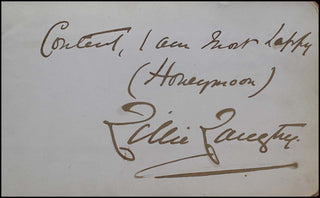 Content, I am most happy
(Honeymoon)
Lillie Langtry.